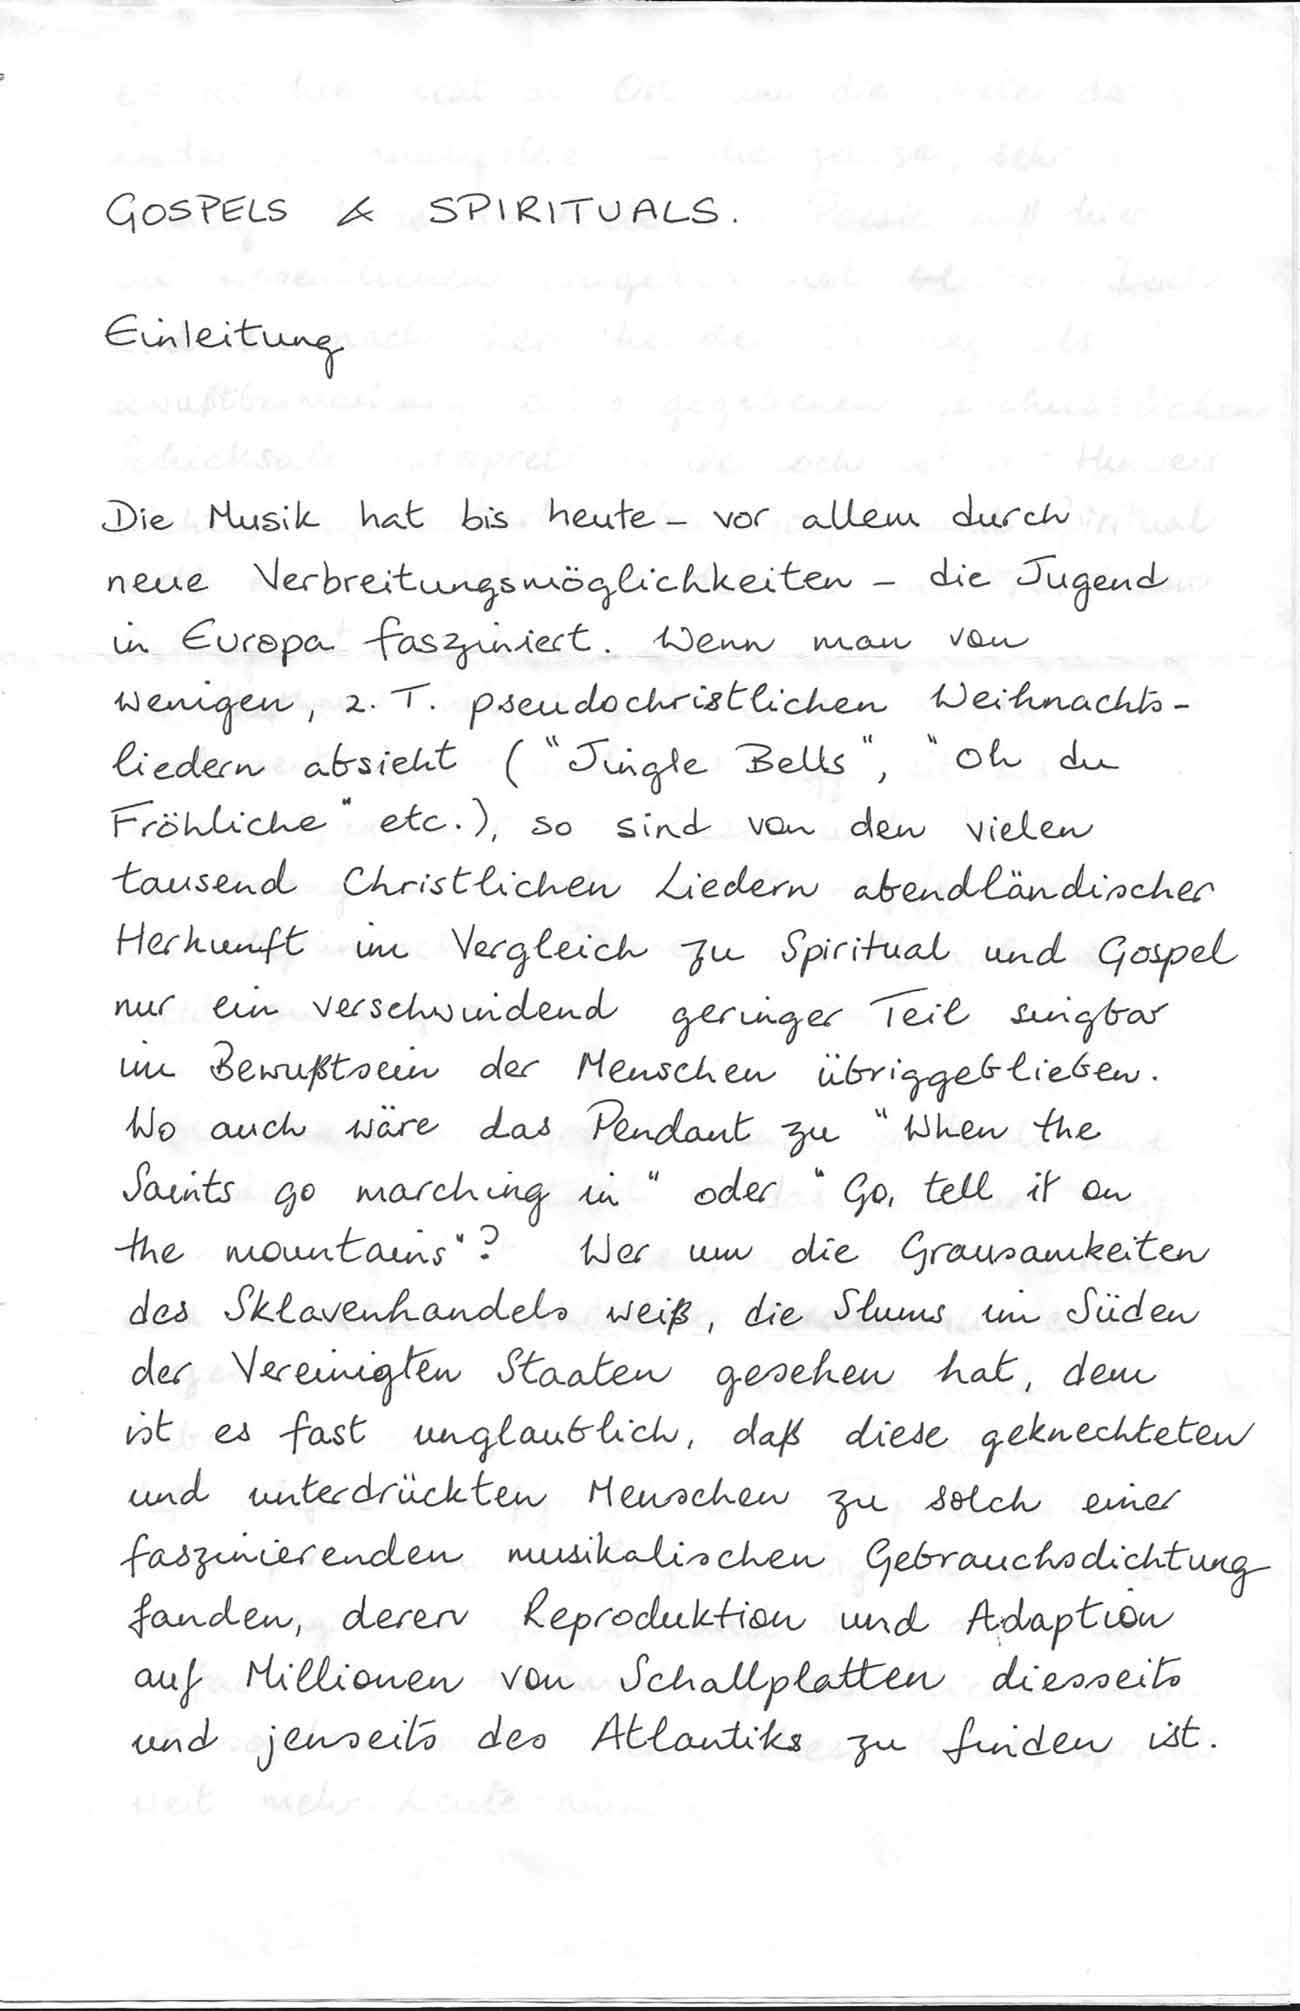 GOSPELS & SPIRITUALS.
Einleitung
Die Musik hat bis heute – vor allem durch
neue Verbreitungsmöglichkeiten – die Jugend
in Europa fasziniert. Wenn man von
wenigen, z. T. pseudochristlichen Weihnachts-
liedern absieht ("Jingle Bells", "Oh du
Fröhliche" etc.), so sind von den vielen
tausend Christlichen Liedern abendländischer
Herkunft im Vergleich zu Spiritual und Gospel
nur ein verschwindend geringer Teil singbar
im Bewußtsein der Menschen übriggeblieben.
Wo auch wäre das Pendant zu "When the
Saints go marching in" oder "Go, tell it on
the mountains"? Wer um die Grausamkeiten
des Sklavenhandels weiß, die Slums im Süden
der Vereinigten Staaten gesehen hat, dem
ist es fast unglaublich, daß diese geknechteten
und unterdrückten Menschen zu solch einer
faszinierenden musikalischen Gebrauchsdichtung
fanden, deren Reproduktion und Adaption
auf Millionen von Schallplatten diesseits
und jenseits des Atlantiks zu finden ist.